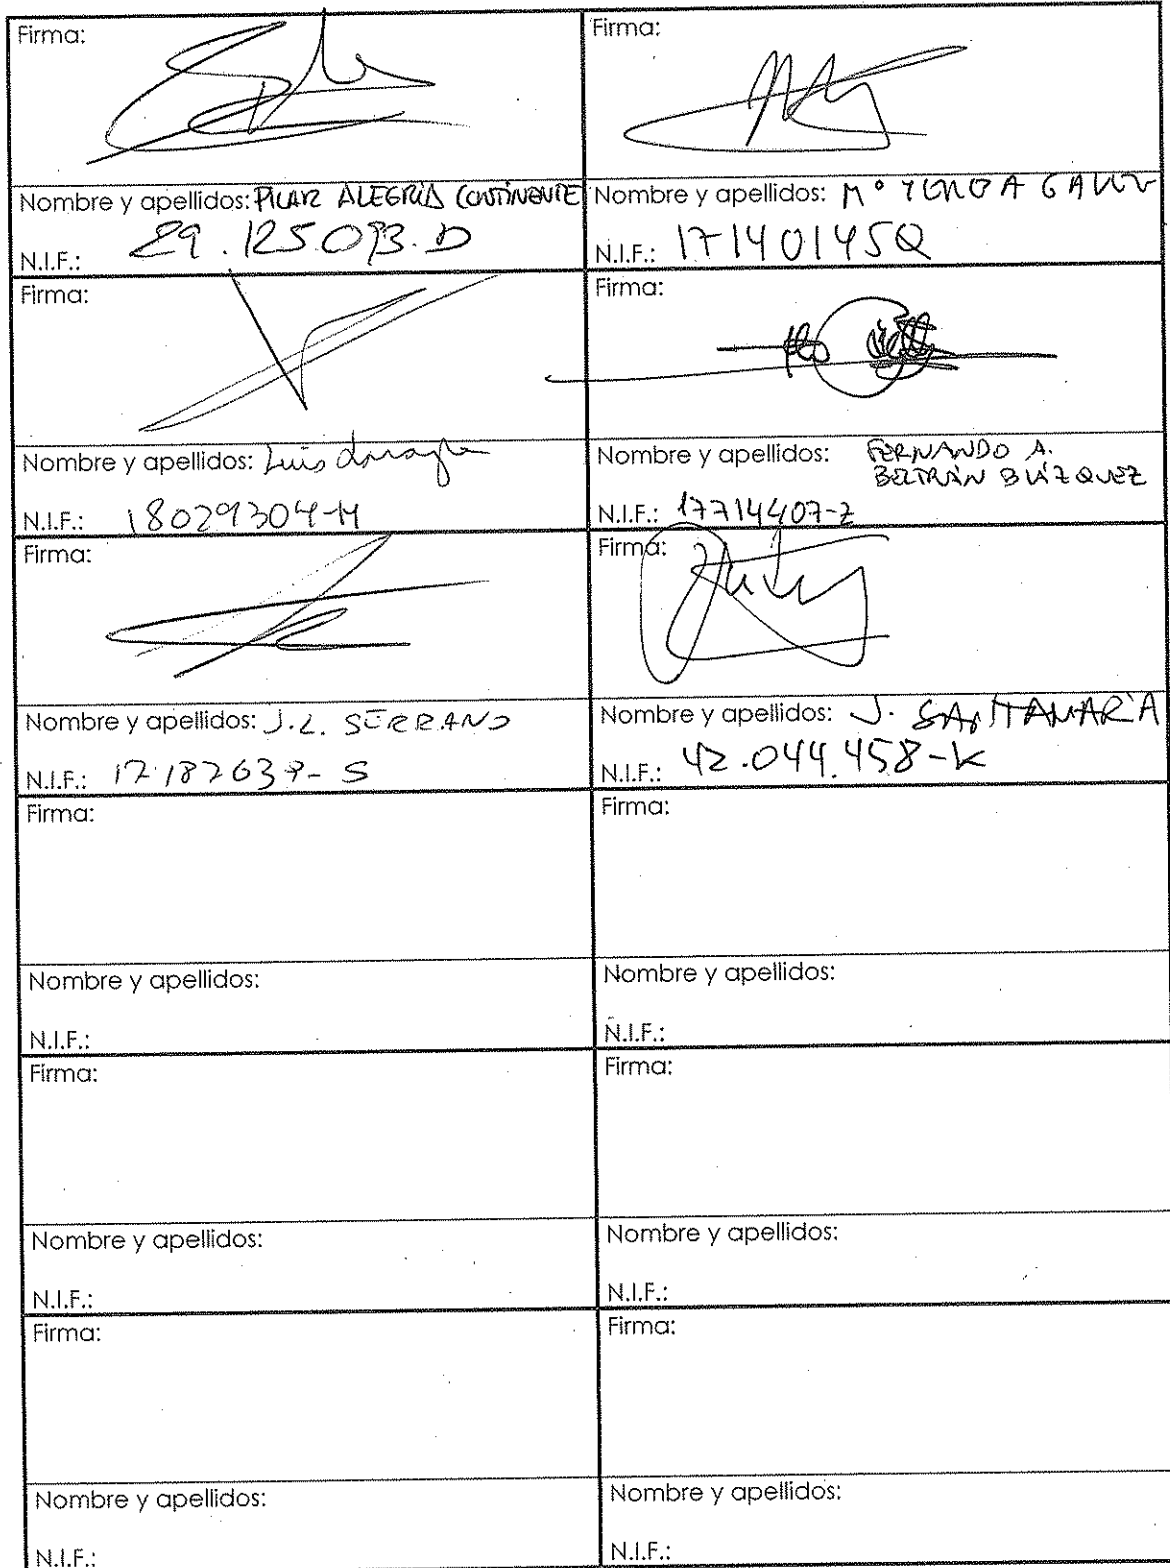 Firma:
Firma:
Nombre y apellidos: PILAR ALEGRÍA CONTINENTE
N.I.F.: 29.125.093.D
Nombre y apellidos: Mª
N.I.F.: 17140145Q
Firma:
Firma:
Nombre y apellidos: Luis
N.I.F.: 18029304-H
Nombre y apellidos: FERNANDO A.
BELTRÁN BLÁZQUEZ
N.I.F.: 17714407-Z
Firma:
Firma:
Nombre y apellidos: J.L. SERRANO
N.I.F.: - S
Nombre y apellidos: J. SANTAMARÍA
N.I.F.: 42.044.458-K
Firma:
Firma:
Nombre y apellidos:
N.I.F.:
Nombre y apellidos:
N.I.F.:
Firma:
Firma:
Nombre y apellidos:
N.I.F.:
Nombre y apellidos:
N.I.F.:
Firma:
Firma:
Nombre y apellidos:
N.I.F.:
Nombre y apellidos:
N.I.F.: